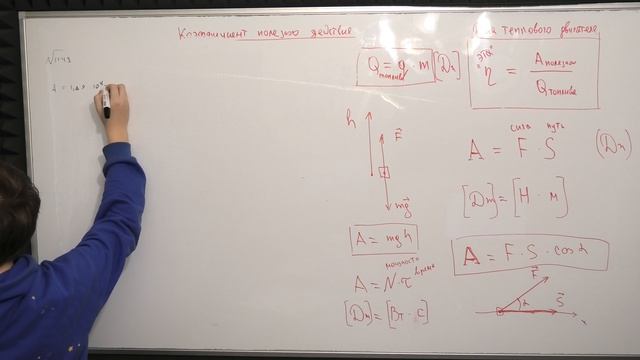 Коэффициент полезного действия
теплового двигателя
№1143
A = 1,2 · 10
Qтоплива = q · m [Дж]
"ЭТА"
η = Aполезн / Qтоплива
h
F
mg
A = mgh
мощность время
A = N · τ
[Дж] = [Вт · с]
сила путь
A = F · S (Дж)
[Дж] = [Н · м]
A = F · S · cos α
F
α
S
x